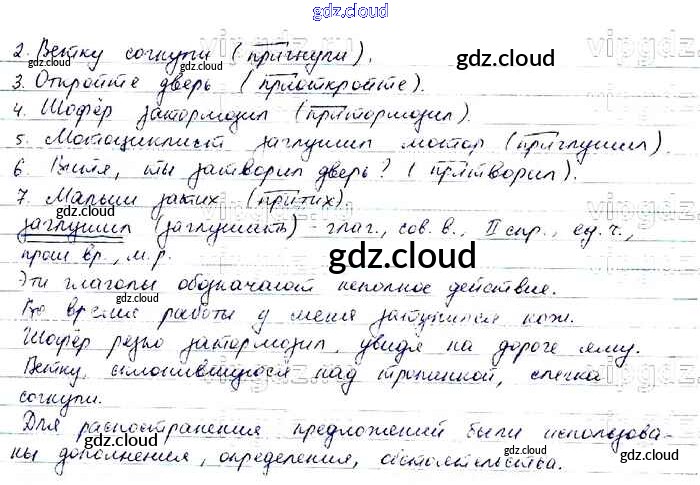 gdz.cloud
2. Ветку согнули (пригнули).
3. Откройте дверь (приоткройте).
4. Шофёр затормозил (притормозил).
5. Мотоциклист заглушил мотор (приглушил).
6. Витя, ты затворил дверь? (притворил).
7. Малыш затих (притих).
заглушил (заглушить) - глаг., сов. в., II спр., ед. ч.,
прош вр., м. р.
Эти глаголы обозначают неполное действие.
Во время работы у меня затупился нож.
Шофёр резко затормозил, увидя на дороге яму.
Ветку, склонившуюся над тропинкой, слегка
согнули.
Для распостранения предложений были использова-
ны дополнения, определения, обстоятельства.
gdz.cloud
gdz.cloud
gdz.cloud
gdz.cloud
gdz.cloud
gdz.cloud
gdz.cloud
gdz.cloud
gdz.cloud